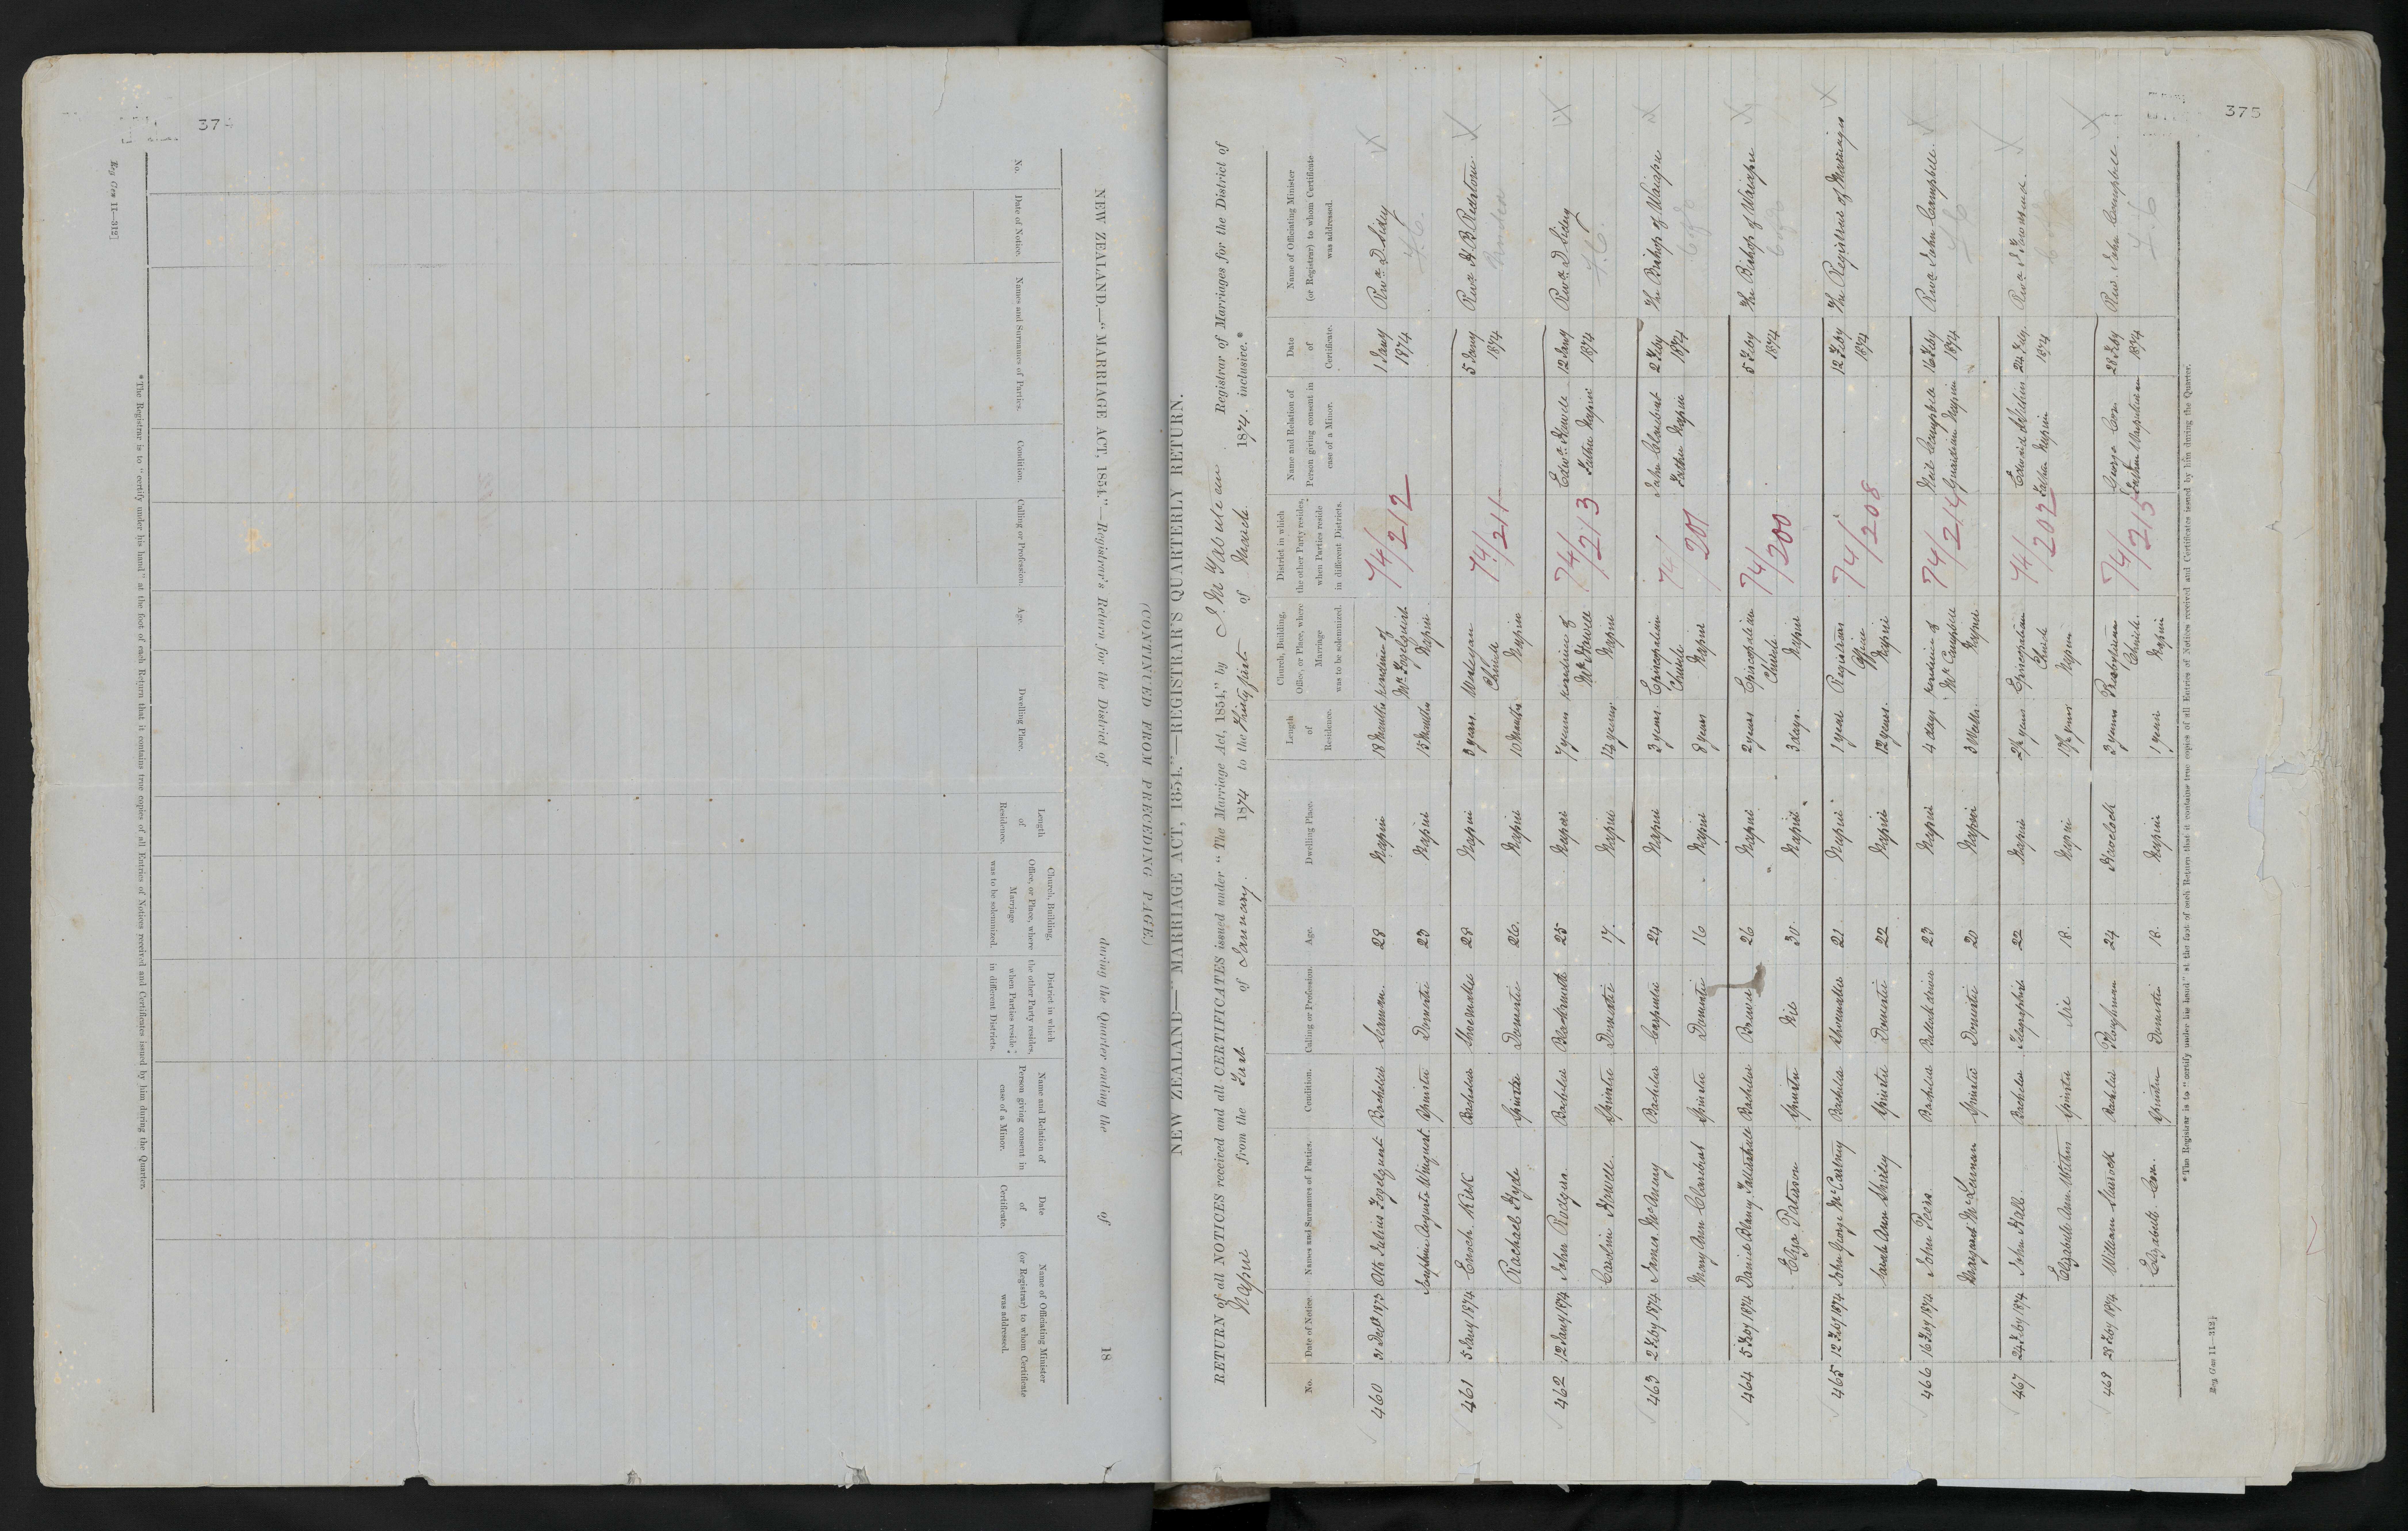 374
Reg Gen 11—312]
NEW ZEALAND.—"MARRIAGE ACT, 1854."—Registrar's Return for the District of during the Quarter ending the of 18
(CONTINUED FROM PRECEDING PAGE.)
No. Date of Notice. Names and Surnames of Parties. Condition. Calling or Profession. Age. Dwelling Place. Length of Residence. Church, Building, Office, or Place, where Marriage was to be solemnized. District in which the other Party resides, when Parties reside in different Districts. Name and Relation of Person giving consent in case of a Minor. Date of Certificate. Name of Officiating Minister (or Registrar) to whom Certificate was addressed.
*The Registrar is to "certify under his hand" at the foot of each Return that it contains true copies of all Entries of Notices received and Certificates issued by him during the Quarter.
375
NEW ZEALAND—"MARRIAGE ACT, 1854."—REGISTRAR'S QUARTERLY RETURN.
RETURN of all NOTICES received and all CERTIFICATES issued under "The Marriage Act, 1854," by Registrar of Marriages for the District of
Napier from the first of January 1874 to the thirty first of March 1874. inclusive.*
No. Date of Notice. Names and Surnames of Parties. Condition. Calling or Profession. Age. Dwelling Place. Length of Residence. Church, Building, Office, or Place, where Marriage was to be solemnized. District in which the other Party resides, when Parties reside in different Districts. Name and Relation of Person giving consent in case of a Minor. Date of Certificate. Name of Officiating Minister (or Registrar) to whom Certificate was addressed.
460 31 Decr 1873 Otto Julius Fogelquist Bachelor Seaman 28 Napier 18 Months residence of Mr Fogelquist Napier 74/212 1 Jany 1874 Revd D. Sidey
Josephine Augusta Spinster Domestic 23 Napier 15 Months
F.C.
461 5 Jany 1874 Enoch Kirk Bachelor Shoemaker 28 Napier 3 years Wesleyan Church Napier 74/211 5 Jany 1874 Revd H. B. Redstone
Rachael Hyde Spinster Domestic 26. Napier 10 Months
462 12 Jany 1874 John Rodgers Bachelor Blacksmith 25 Napier 7 years residence of Mr Howell Napier 74/213 Edwd Howell Father Napier 12 Jany 1874 Revd D. Sidey
Caroline Howell Spinster Domestic 17. Napier 14 years
F.C.
463 2 Feby 1874 James Bachelor Carpenter 24 Napier 3 years Episcopalian Church Napier 74/201 John Clareburt Father Napier 2 Feby 1874 The Bishop of Waiapu
Mary Ann Clareburt Spinster Domestic 16 Napier 8 years
464 5 Feby 1874 Daniel Blaney Bachelor Brewer 26 Napier 2 years Episcopalian Church Napier 74/200 5 Feby 1874 The Bishop of Waiapu
Eliza Paterson Spinster Nil 30. Napier 3 days.
465 12 Feby 1874 John George McCartney Bachelor Shoemaker 21. Napier 1 year Registrars Office Napier 74/208 12 Feby 1874 The Registrar of Marriages
Sarah Ann Shirley Spinster Domestic 22 Napier 12 years.
466 16 Feby 1874 John Peers Bachelor Bullock driver 23 Napier 4 days residence of Mr Campbell Napier 74/214 Neil Campbell Guardian Napier 16 Feby 1874 Revd John Campbell
Margaret McLennan Spinster Domestic 20 Napier 3 Weeks
467 24 Feby 1874 John Hall Bachelor Telegraphist 22 Napier 2½ years Episcopalian Church Napier 74/202 Edwin Withers Father Napier 24 Feby. 1874 Revd J. Townsend.
Elizabeth Ann Withers Spinster Nil 18. Napier 17½ years
468 28 Feby 1874 William Bachelor Ploughman 24 Havelock 3 years Presbyterian Church Napier 74/215 George Cox Father 28 Feby 1874 Rev. John Campbell
Elizabeth Cox. Spinster Domestic 18. Napier 1 year
F.C.
*The Registrar is to "certify under his hand" at the foot of each Return that it contains true copies of all Entries of Notices received and Certificates issued by him during the Quarter.
Reg Gen 11—312]